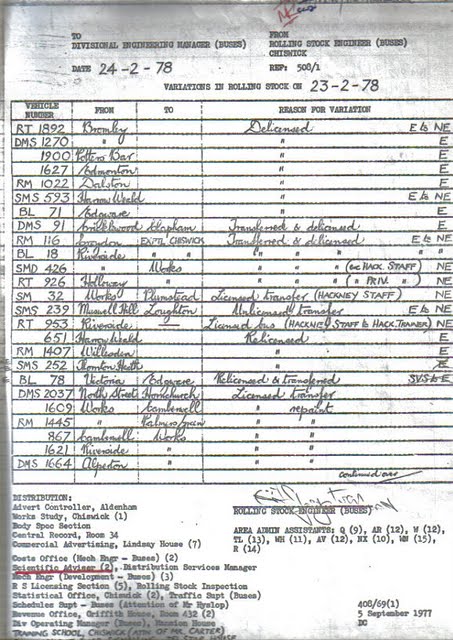 TO
DIVISIONAL ENGINEERING MANAGER (BUSES)
FROM
ROLLING STOCK ENGINEER (BUSES)
CHISWICK
DATE 24-2-78
REF: 508/1
VARIATIONS IN ROLLING STOCK ON 23-2-78
VEHICLE NUMBER FROM TO REASON FOR VARIATION
RT 1892 Bromley Delicensed E to NE
DMS 1270 " " E
1900 Potters Bar " E
1627 Edmonton " E
RM 1022 Dalston " E
SMS 593 Harrow Weald " E to NE
BL 71 Edgware " E
DMS 91 Cricklewood Clapham Transferred & delicensed E
RM 116 Croydon EXPTL CHISWICK Transferred & delicensed E to NE
BL 18 Riverside " " " " " E
SMD 426 " Works " " (ex HACK. STAFF) NE
RT 926 Holloway " " " ( " PRIV. " ) NE
SM 32 Works Plumstead Licensed transfer (HACKNEY STAFF) NE
SMS 239 Muswell Hill Loughton Unlicensed transfer E to NE
RT 953 Riverside — Licensed bus (HACKNEY STAFF to HACK. TRAINER) NE
651 Harrow Weald Relicensed E
RM 1407 Willesden " E
SMS 252 Thornton Heath " E
BL 78 Victoria Edgware Relicensed & transferred SVS to E
DMS 2037 North Street Hornchurch Licensed transfer
1609 Works Camberwell " repaint
RM 1445 " Palmers Green "
867 Camberwell Works "
1621 Riverside " "
DMS 1664 Alperton " "
continued over
DISTRIBUTION:
Advert Controller, Aldenham
Works Study, Chiswick (1)
Body Spec Section
Central Record, Room 34
Commercial Advertising, Lindsay House (7)
Costs Office (Mech Engr - Buses) (2)
Scientific Adviser (2), Distribution Services Manager
Mech Engr (Development - Buses) (3)
R S Licensing Section (5), Rolling Stock Inspection
Statistical Office, Chiswick (2), Traffic Supt (Buses)
Schedules Supt - Buses (Attention of Mr Hyslop)
Revenue Office, Griffith House, Room 432 (2)
Div Operating Supt (Buses), Mansion House
TRAINING SCHOOL, CHISWICK (ATTN OF MR. CARTER)
ROLLING STOCK ENGINEER (BUSES)
AREA ADMIN ASSISTANTS: Q (9), AR (12), W (12),
TL (13), WH (11), AV (12), NX (10), WN (15),
R (14)
408/69(1)
5 September 1977
DC